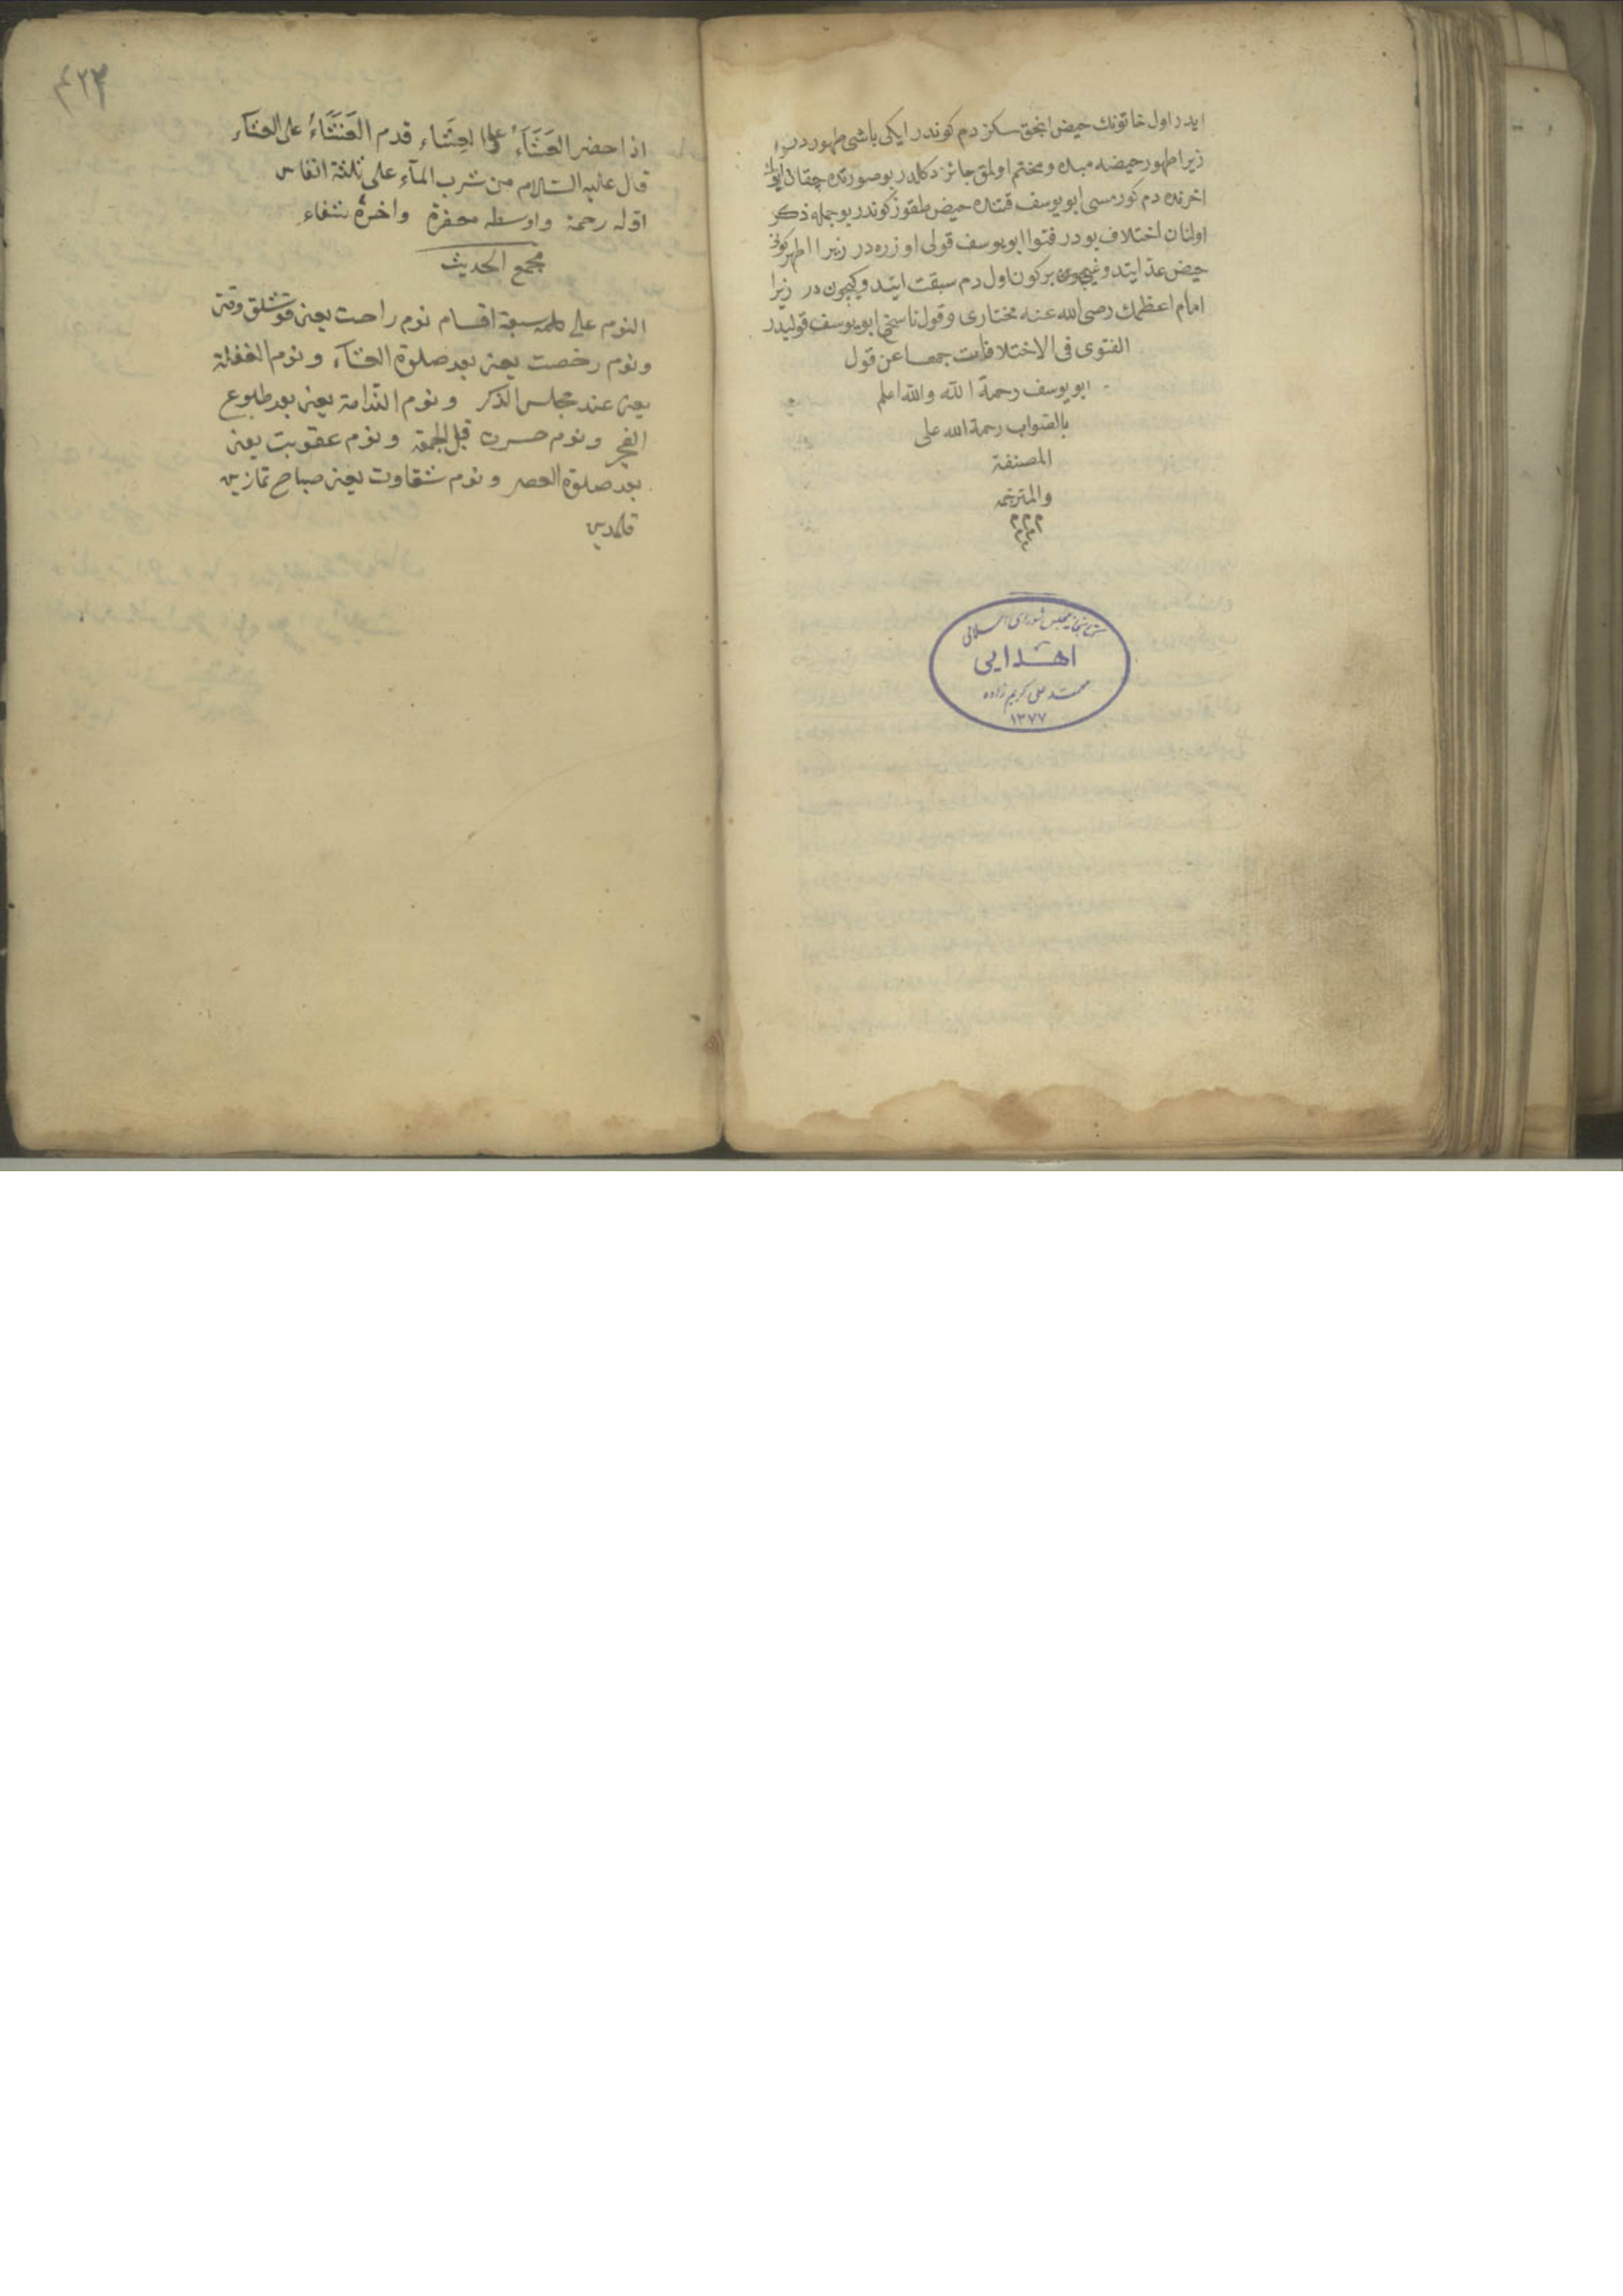 ایدر اول خاتونك حیض انجق سكز دم كوندر ایكی باشی طهور در
زیرا طهور حیضه مبده و مختم اولمق جائز دكلدر بو صورتده چقان
اخرنده دم كورمسی ابو یوسف قتنده حیض طقوز كوندر بو جمله ذكر
اولنان اختلاف بودر فتوا ابو یوسف قولی اوزره در زیرا اطهر كونی
حیض عد ایتدوغیچون بر كون اول دم سبقت ایتدوكیچون در زیرا
امام اعظمك رضی الله عنه مختاری و قول ناسخی ابو یوسف قولیدر
الفتوی فی الاختلافات جمعا عن قول
ابو یوسف رحمة الله والله اعلم
بالصواب رحمة الله علی
المصنفة
والمترجمه
كتابخانه مجلس شورای اسلامی
اهدایی
محمد علی كریم زاده
۱۳۷۷
۴۲۳
اذا حضر العَشَآءُ علی العِشَاء قدم العَشَّاءُ علی العشآء
قال علیه السّلام من شرب المآء علی ثلثة انفاس
اوّله رحمة واوسطه مغفرة واخره شفاء
مجمع الحدیث
النوم علی سبعة اقسام نوم راحت یعنی قوشلق وقتی
ونوم رخصت یعنی بعد صلوة العشآء ونوم الغفلة
یعنی عند مجلس الذكر ونوم الندامة یعنی بعد طلوع
الفجر ونوم حسرت قبل الجمعة ونوم عقوبت یعنی
بعد صلوة العصر ونوم شقاوت یعنی صباح نمازین
قلمدین